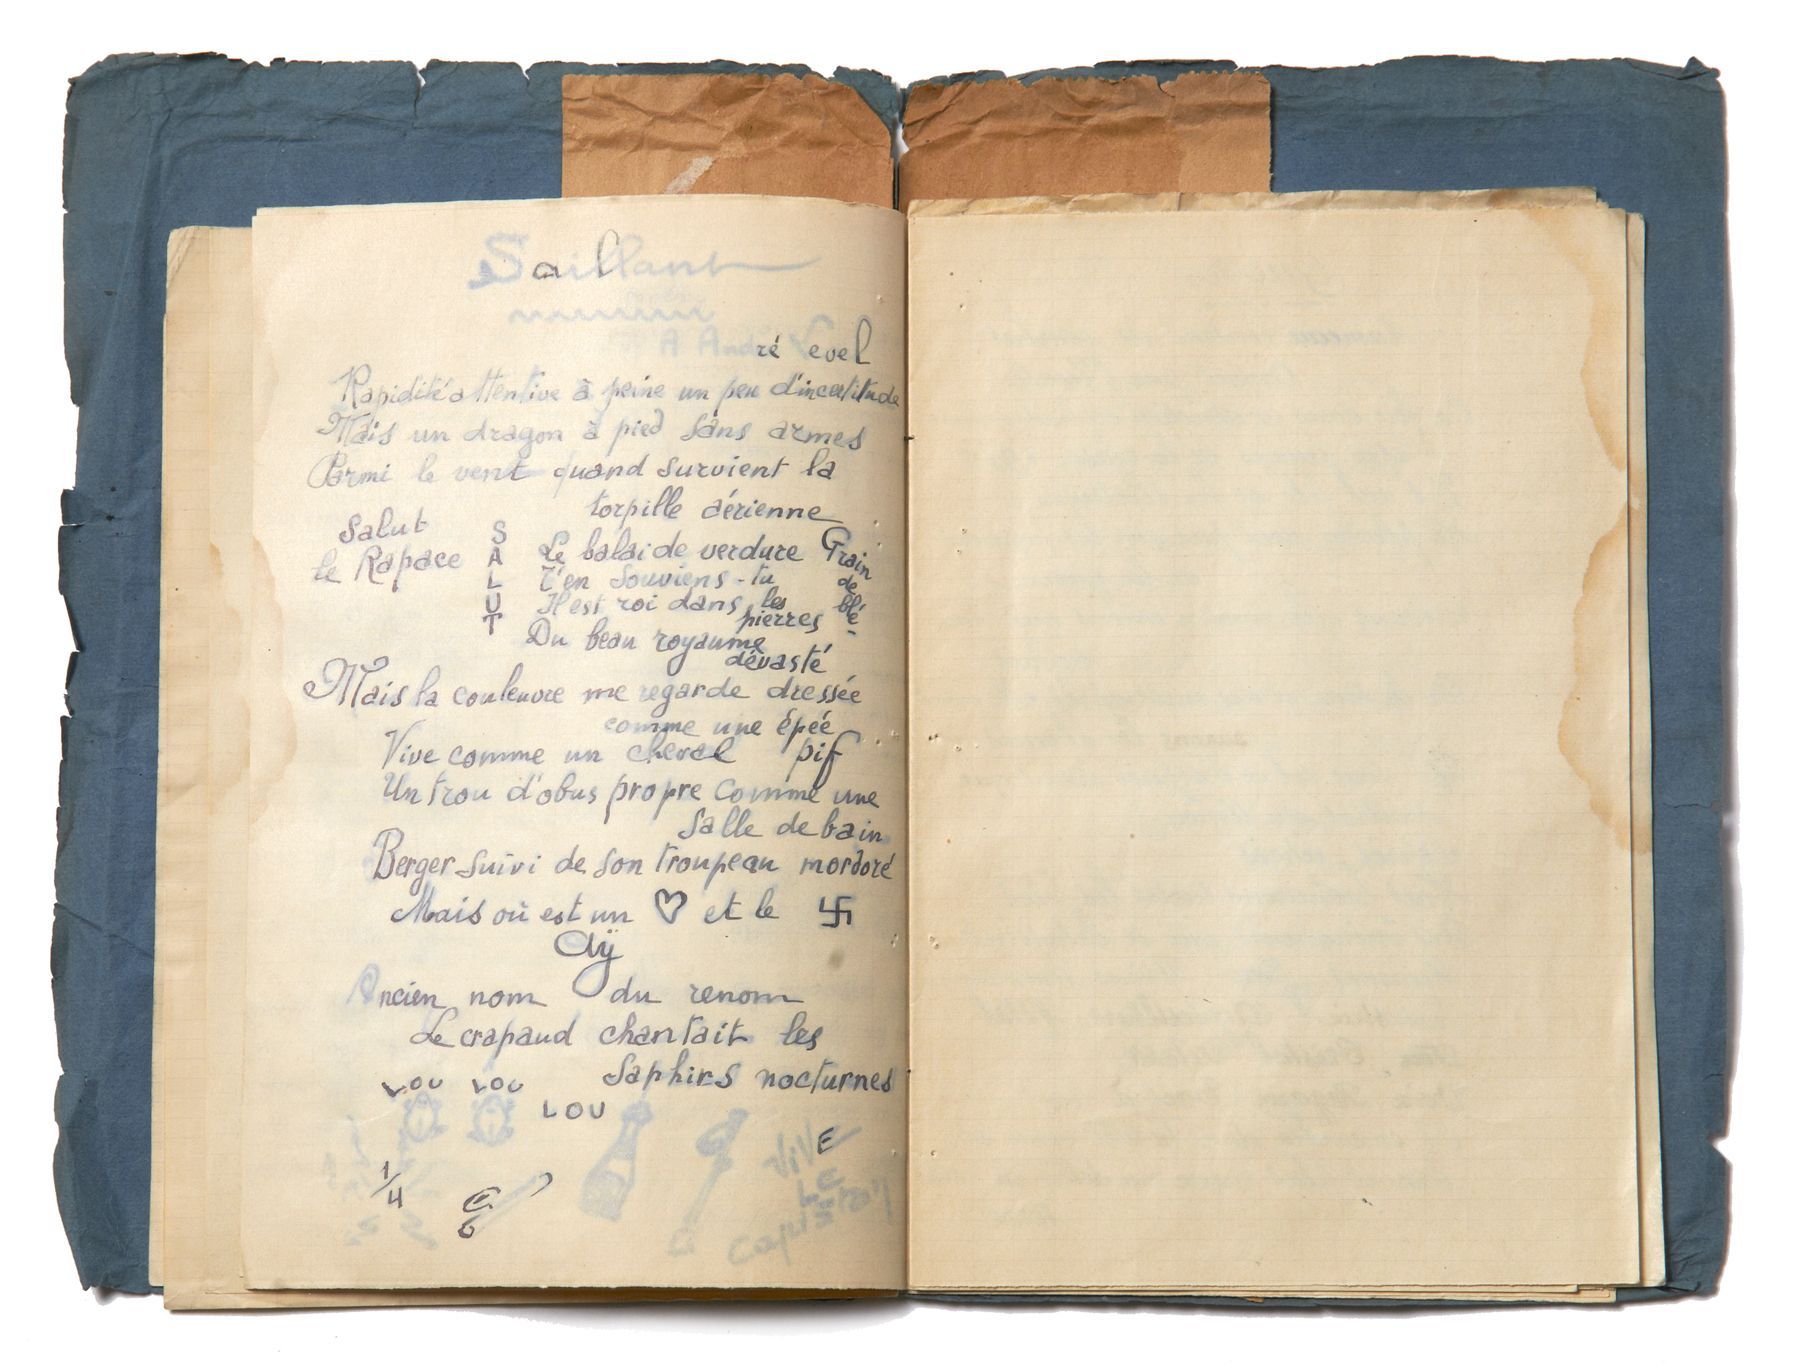 Saillant
A André Level
Rapidité attentive à peine un peu d'incertitude
Mais un dragon à pied sans armes
Parmi le vent quand survient la
torpille aérienne
Salut
le Rapace
S
A
L
U
T
Le balai de verdure
T'en souviens-tu
Il est roi dans les
pierres
Du beau royaume
dévasté
Grain
de
blé
Mais la couleuvre me regarde dressée
comme une épée
Vive comme un cheval pif
Un trou d'obus propre comme une
salle de bain
Berger suivi de son troupeau mordoré
Mais où est un ♡ et le 卐
Aÿ
Ancien nom du renom
Le crapaud chantait les
saphirs nocturnes
LOU LOU
LOU
VIVE
LE
Capiston
1/4